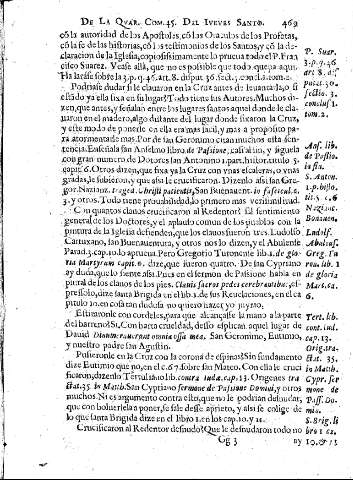 DE LA QVAR. COM. 45. DEL IVEVES SANTO. 469
cõ la autoridad de los Apostoles, cõ los Oraculos de los Profetas,
cõ la fe de las historias, cõ los testimonios de los Santos, y cõ la de-
claracion de la Iglesia, copiosissimamente lo prueua todo el P. Fran
cisco Suarez. Vease allà, que no es possible que todo quepa aqui.
Podriase dudar si le clauaron en la Cruz antes de leuantarla, o si
estãdo ya ella fixa en su lugar? Todo tiene sus Autores. Muchos di-
zen, que antes, y señalan entre los lugares santos aquel donde le cla-
uaron en el madero, algo distante del lugar donde fixaron la Cruz,
y este modo de ponerle en ella era mas facil, y mas a proposito pa-
ra atormentarle mas. Por de san Geronimo citan muchos esta sen-
tencia. Enseñala san Anselmo libro de Passione, casi al fin, y siguela
con gran numero de Dotores san Antonino 1. part. histor. titulo 5.
capit. 6. Otros dizen, que fixa ya la Cruz con vnas escaleras, o vnas
gradas, le subieron, y que assi le crucificaron. Dizenlo assi san Gre-
gor. Nazianz. traged. Christi patientis, San Buenauent. in fascicul. c.
3. y otros. Todo tiene prouabilidad, lo primero mas verisimilitud.
Con quantos clauos crucificaron al Redentor? El sentimiento
general de los Doctores, y el aplauso comun de los pueblos con la
pintura de la Iglesia defienden, que los clauos fueron tres. Ludolfo
Cartuxano, san Buenauentura, y otros nos lo dizen, y el Abulense
Parad. 3. cap. 10. lo aprueua. Pero Gregorio Turonense lib. 1. de glo-
ria Martyrum capit. 6. dize, que fueron quatro. De san Cypriano
ay duda, que lo siente assi. Pues en el sermon de Passione habla en
plural de los clauos de los pies. Clauis sacros pedes cerebrantibus; es-
pressolo, dize santa Brigida en el lib. 1. de sus Reuelaciones, en el ca
pitulo 10. en cosa tan dudosa no quiero hazer yo juyzio.
Estiraronle con cordeles, para que alcançasse la mano a la parte
del barreno? Si, Con harta crueldad, desso esplican aquel lugar de
Dauid Dinumerauerunt omnia ossa mea. San Geronimo, Eutimio,
y nuestro padre san Agustin.
Pusieronle en la Cruz con la corona de espinas? Sin fundamento
dize Eutimio que no, en el c. 67. sobre san Mateo. Con ella le cruci-
ficaron, dizenlo Tertuliano lib. contra Iuda. cap. 13. Origenes tra
ctat. 35. in Matth. San Cypriano sermone de Passione Domini, y otros
muchos. Ni es argumento contra esto, que no le podrian desnudar,
que con boluerles a poner, se sale desse aprieto, y assi se colige de
lo que santa Brigida dize en el libro 1. en los cap. 10. y 15.
Crucificaron al Redentor desnudo? Que le desnudaron todo no
Gg 3 ay
P. Suar.
3. p. q. 46
art. 8. dis-
put. 36.
sectio. 3.
conclus. 1.
tom. 2.
Ans. lib.
de Passio.
in fin.
S. Anton.
1. p. histo.
tit. 5. c. 6
Nazianz.
Bonauen.
Ludolf.
Abulens.
Greg. Tu
ron. lib. 1
de gloria
Mart. ca.
6.
Tert. lib.
cont. iud.
cap. 13.
Orig. tra-
ctat. 35.
in Matth.
Cypr. ser-
mone de
Pass. Do-
mini.
S. Brig. li
bro 1. ca.
10. & 15